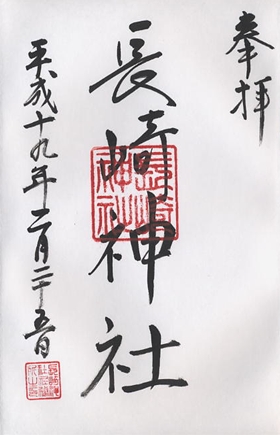 奉拝
長崎神社
平成十九年二月二十五日